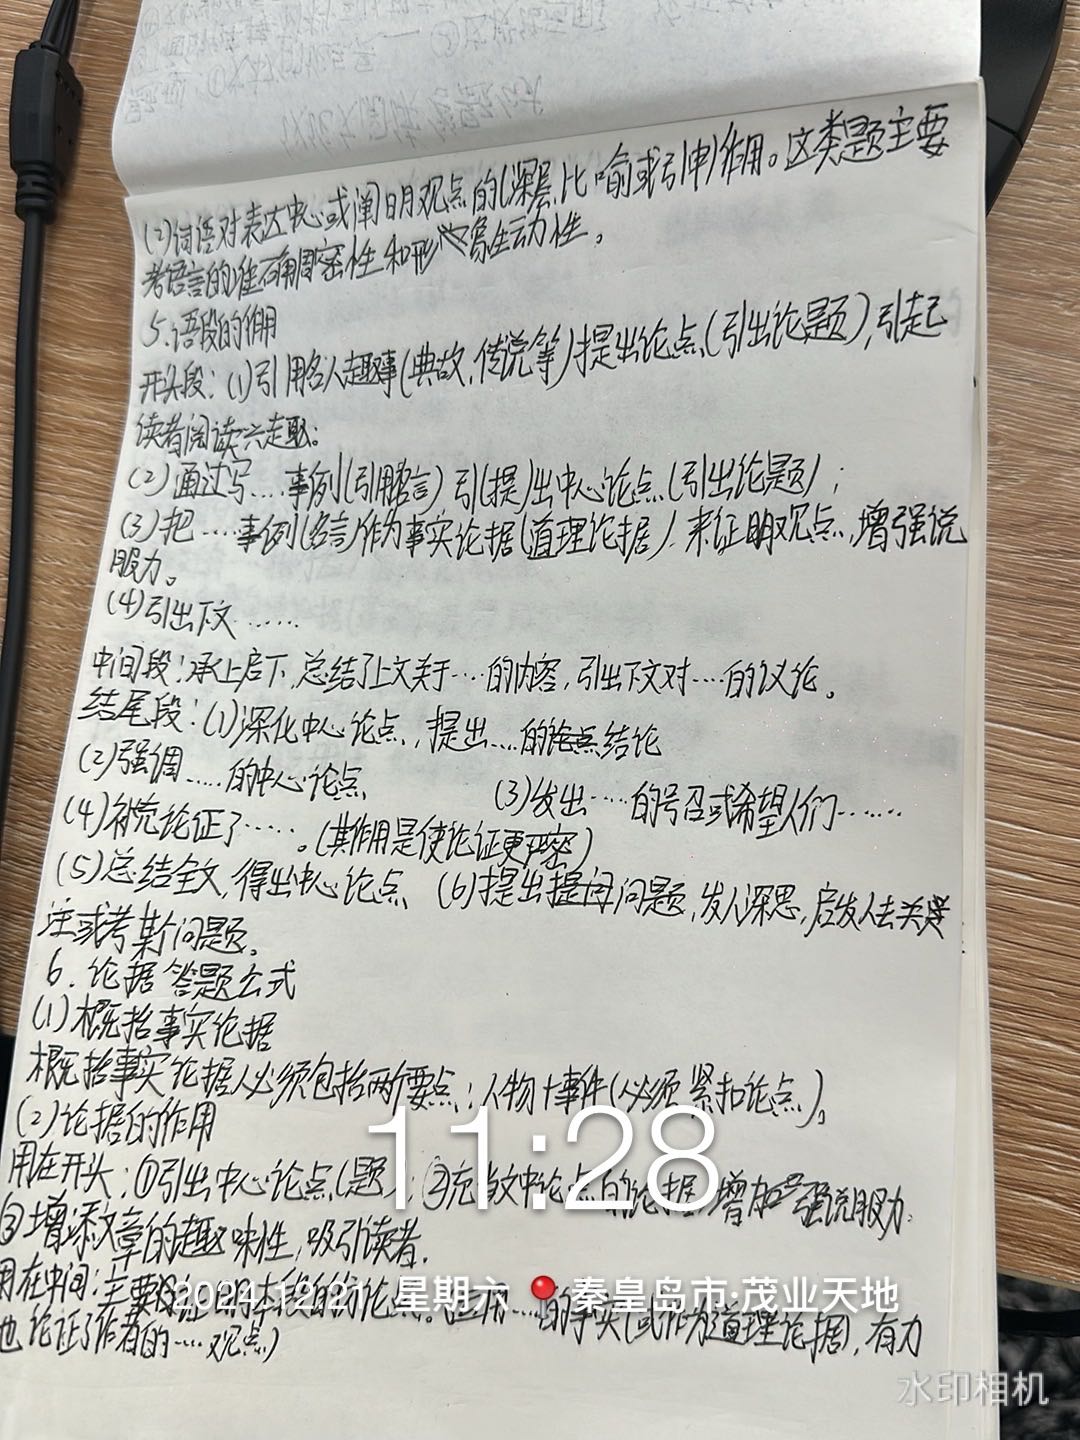 (2)词语对表达中心或阐明观点的(深层比喻或引申)作用。这类题主要
考语言的准确周密性和形象生动性。
5.语段的作用
开头段:(1)引用名人趣事(典故,传说等)提出论点(引出论题),引起
读者阅读兴趣。
(2)通过写....事例(引用名言)引(提)出中心论点(引出论题);
(3)把....事例(名言)作为事实论据(道理论据),来证明观点,增强说
服力。
(4)引出下文......
中间段:承上启下,总结了上文关于....的内容,引出下文对....的议论。
结尾段:(1)深化中心论点,提出....的结论
(2)强调.....的中心论点 (3)发出.....的号召或希望人们......
(4)补充论证了......。(其作用是使论证更严密)
(5)总结全文,得出中心论点 (6)提出问题,发人深思,启发人去关
注或考某个问题。
6.论据答题公式
(1)概括事实论据
概括事实论据必须包括两个要点:人物+事件(必须紧扣论点)。
(2)论据的作用
用在开头:①引出中心论点(题);②充当文中论点的论据,增加强说服力。
③增添文章的趣味性,吸引读者。
用在中间:主要 本段的 论点。 ....的事实(或作为道理论据),有力
地论证了作者的....观点)
11:28
2024.12.21 星期六 秦皇岛市·茂业天地
水印相机